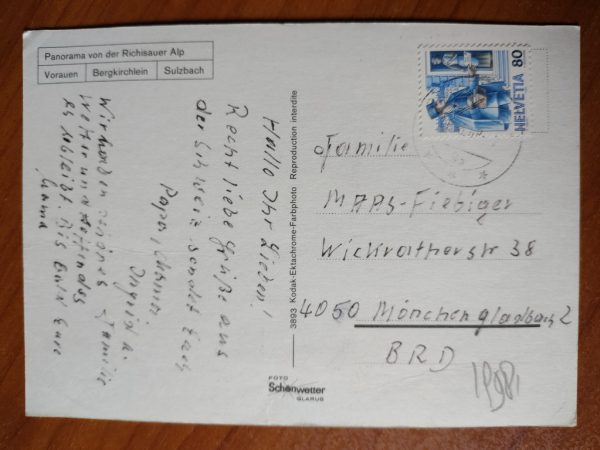 Panorama von der Richisauer Alp
Vorauen Bergkirchlein Sulzbach
Hallo Ihr Lieben!
Recht liebe Grüße aus
der Schweiz sendet Euch
Papa, Mama
Ingrid u. Familie
Wir haben schönes
Wetter und hoffen das
es so bleibt. Bis bald Eure
Mama
3893 Kodak-Ektachrome-Farbphoto Reproduction interdite
FOTO
Schönwetter
GLARUS
HELVETIA 80
Familie
MAAS-Fiebiger
Wickratherstr 38
4050 Mönchengladbach 2
BRD